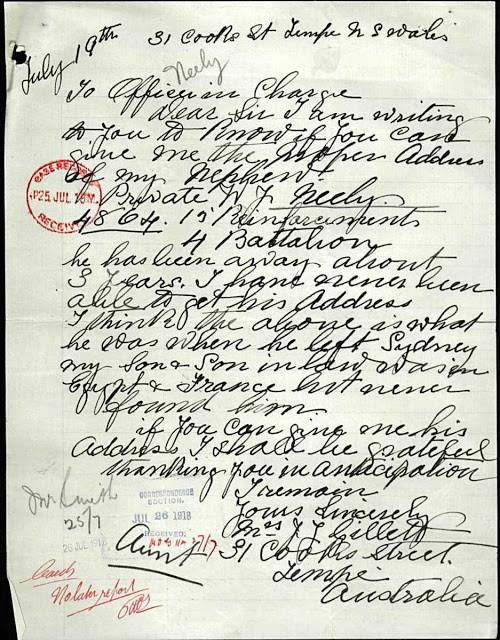 July 19th
31 Cooks St Tempe N S Wales
Neely
To Officer in Charge
Dear Sir I am writing
to you to know if you can
give me the proper Address
of my Nephew
Private W J Neely
4864. 15 Reinforcements
4 Battalion
he has been away about
3 years. I have never been
able to get his Address
I think the above is what
he was when he left Sydney
my Son & Son in law was in
Egypt & France but never
found him.
if you can give me his
Address I shall be grateful
thanking you in anticipation
I remain
Yours Sincerely
Mrs J J Gillett
31 Cooks Street.
Tempe
Australia
Aunt
RECEIVED
25 JUL 18
25/7
CORRESPONDENCE
SECTION.
JUL 26 1918
RECEIVED
27/7
26 JUL 1918
Search
No later report